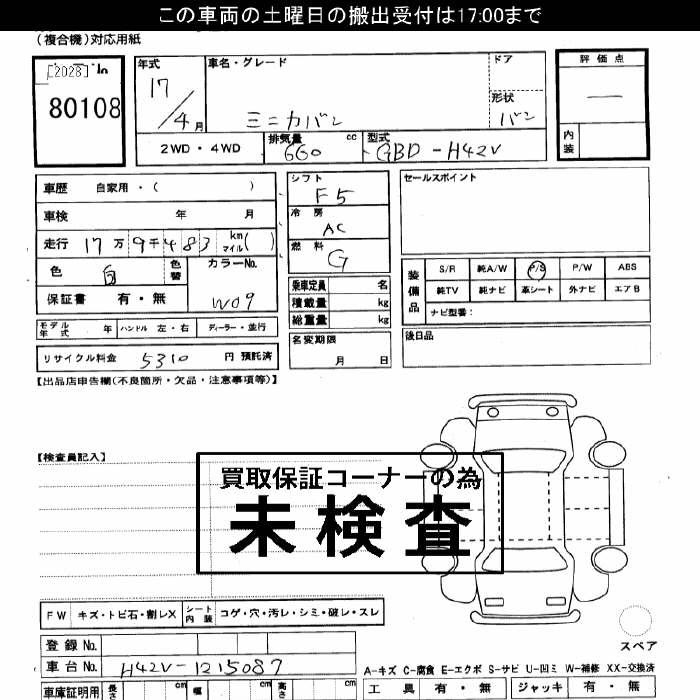 この車両の土曜日の搬出受付は17:00まで
(複合機)対応用紙
[2028]
80108
年式 17/4月
車名・グレード ミニカバン
ドア
形状 バン
評価点 —
内装
2WD・4WD
排気量 660 cc
型式 GBD-H42V
車歴 自家用・( )
シフト F5
セールスポイント
車検 年 月
冷房 AC
走行 17万9千483 km マイル( )
燃料 G
色 白 色替
カラーNo. W09
装備品 S/R 純A/W P/S P/W ABS
純TV 純ナビ 革シート 外ナビ エアB
ナビ型番:
保証書 有・無
乗車定員 名
積載量 kg
総重量 kg
モデル年式 年 ハンドル 左・右 ディーラー・並行
名変期限 月 日
後日品
リサイクル料金 5310 円 預託済
【出品店申告欄(不良箇所・欠品・注意事項等)】
【検査員記入】
買取保証コーナーの為
未検査
FW キズ・トビ石・割レX シート内装 コゲ・穴・汚レ・シミ・破レ・スレ
登録No.
車台No. H42V-1215087
スペア
A-キズ C-腐食 E-エクボ S-サビ U-凹ミ W-補修 XX-交換済
車庫証明用 長さ cm 幅 cm 高さ cm
工具 有・無 ジャッキ 有・無